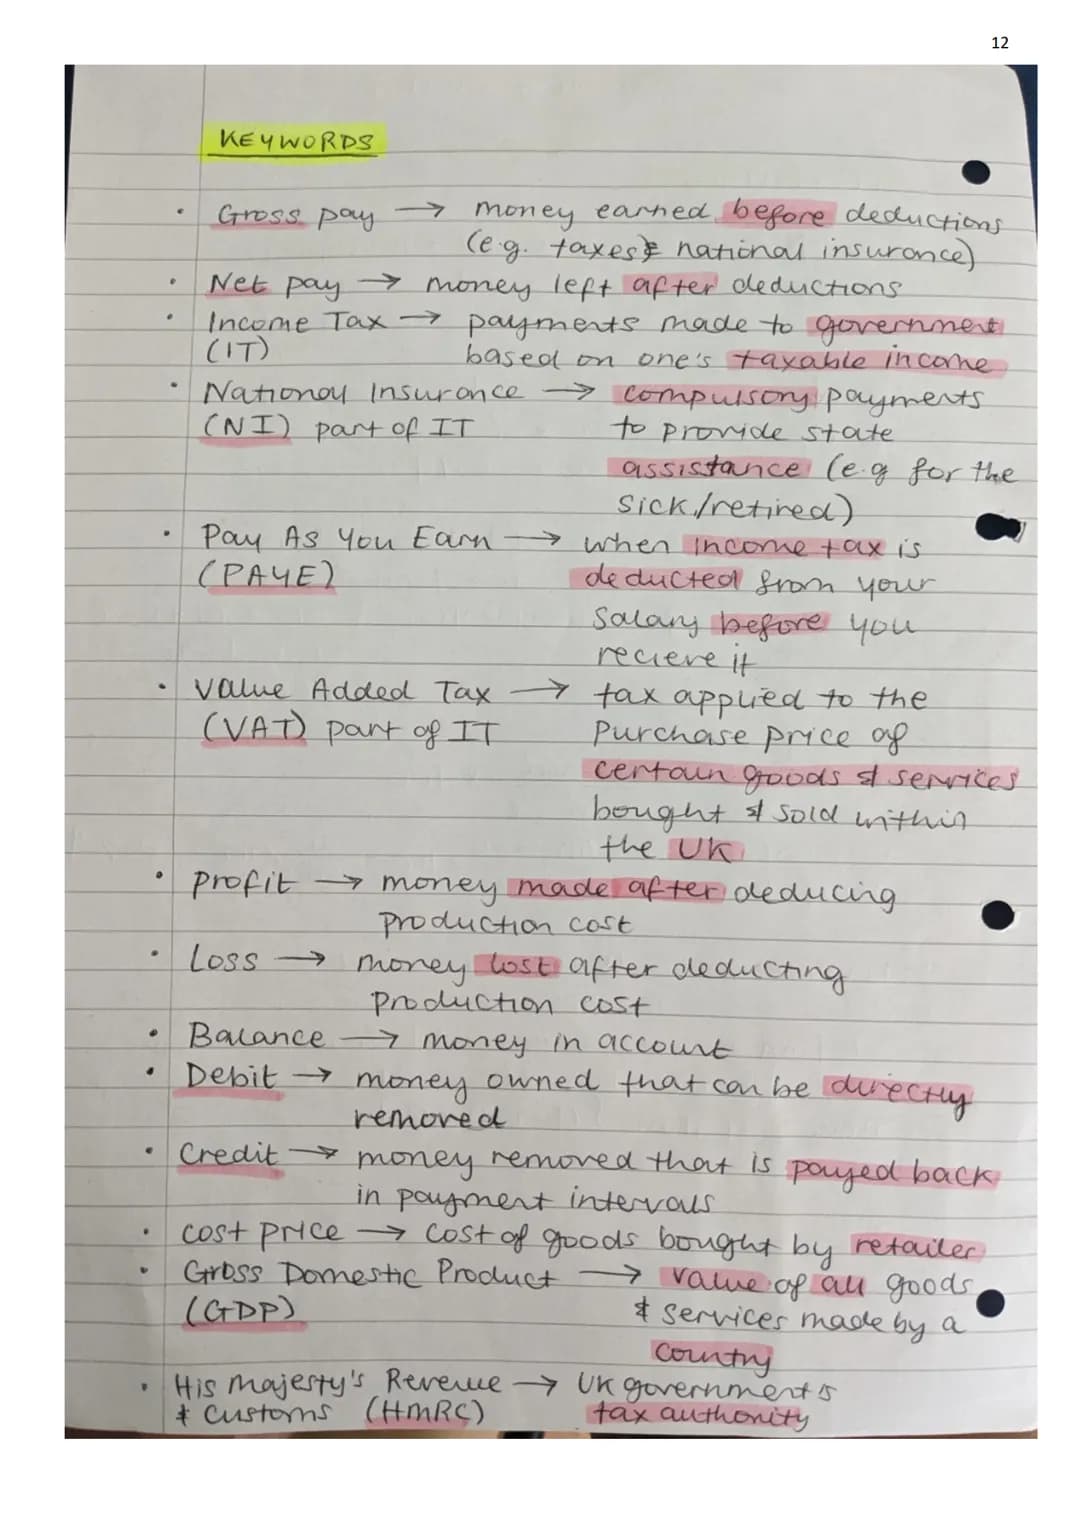 12
KEYWORDS
• Gross pay → money earned before deductions
(e.g. taxes & national insurance)
• Net pay → money left after deductions
• Income Tax → payments made to government
(IT) based on one's taxable income
• National Insurance → compulsory payments
(NI) part of IT to provide state
assistance (e.g for the
sick/retired)
• Pay As You Earn → when income tax is
(PAYE) deducted from your
salary before you
recieve it
• Value Added Tax → tax applied to the
(VAT) part of IT purchase price of
certain goods & services
bought & sold within
the UK
• profit → money made after deducing
production cost
• Loss → money lost after deducting
production cost
• Balance → money in account
• Debit → money owned that can be directly
removed
• Credit → money removed that is payed back
in payment intervals
• cost price → cost of goods bought by retailer
• Gross Domestic Product → value of all goods
(GDP) & services made by a
country
• His majesty's Revenue → UK government's
& Customs (HMRC) tax authority